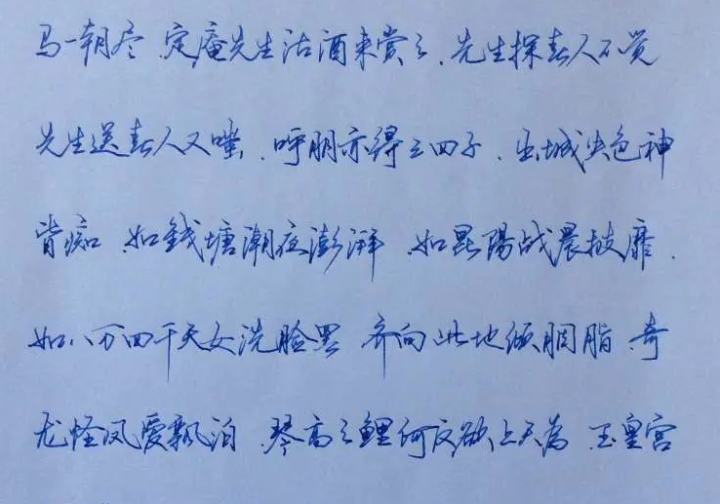 马一朝尽 定庵先生沽酒来赏之 先生探春人不觉
先生送春人又嗤 呼朋亦得三四子 出城失色神
皆痴 如錢塘潮夜澎湃 如昆陽战晨披靡
如八万四千天女洗脸罢 齐向此地倾胭脂 奇
龙怪凤爱飘泊 琴高之鲤何反欲上天为 玉皇宫